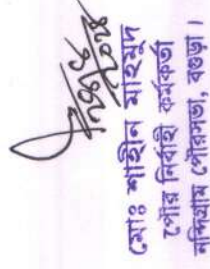 মোঃ শাহীন মাহমুদ
পৌর নির্বাহী কর্মকর্তা
নন্দিগ্রাম পৌরসভা, বগুড়া।